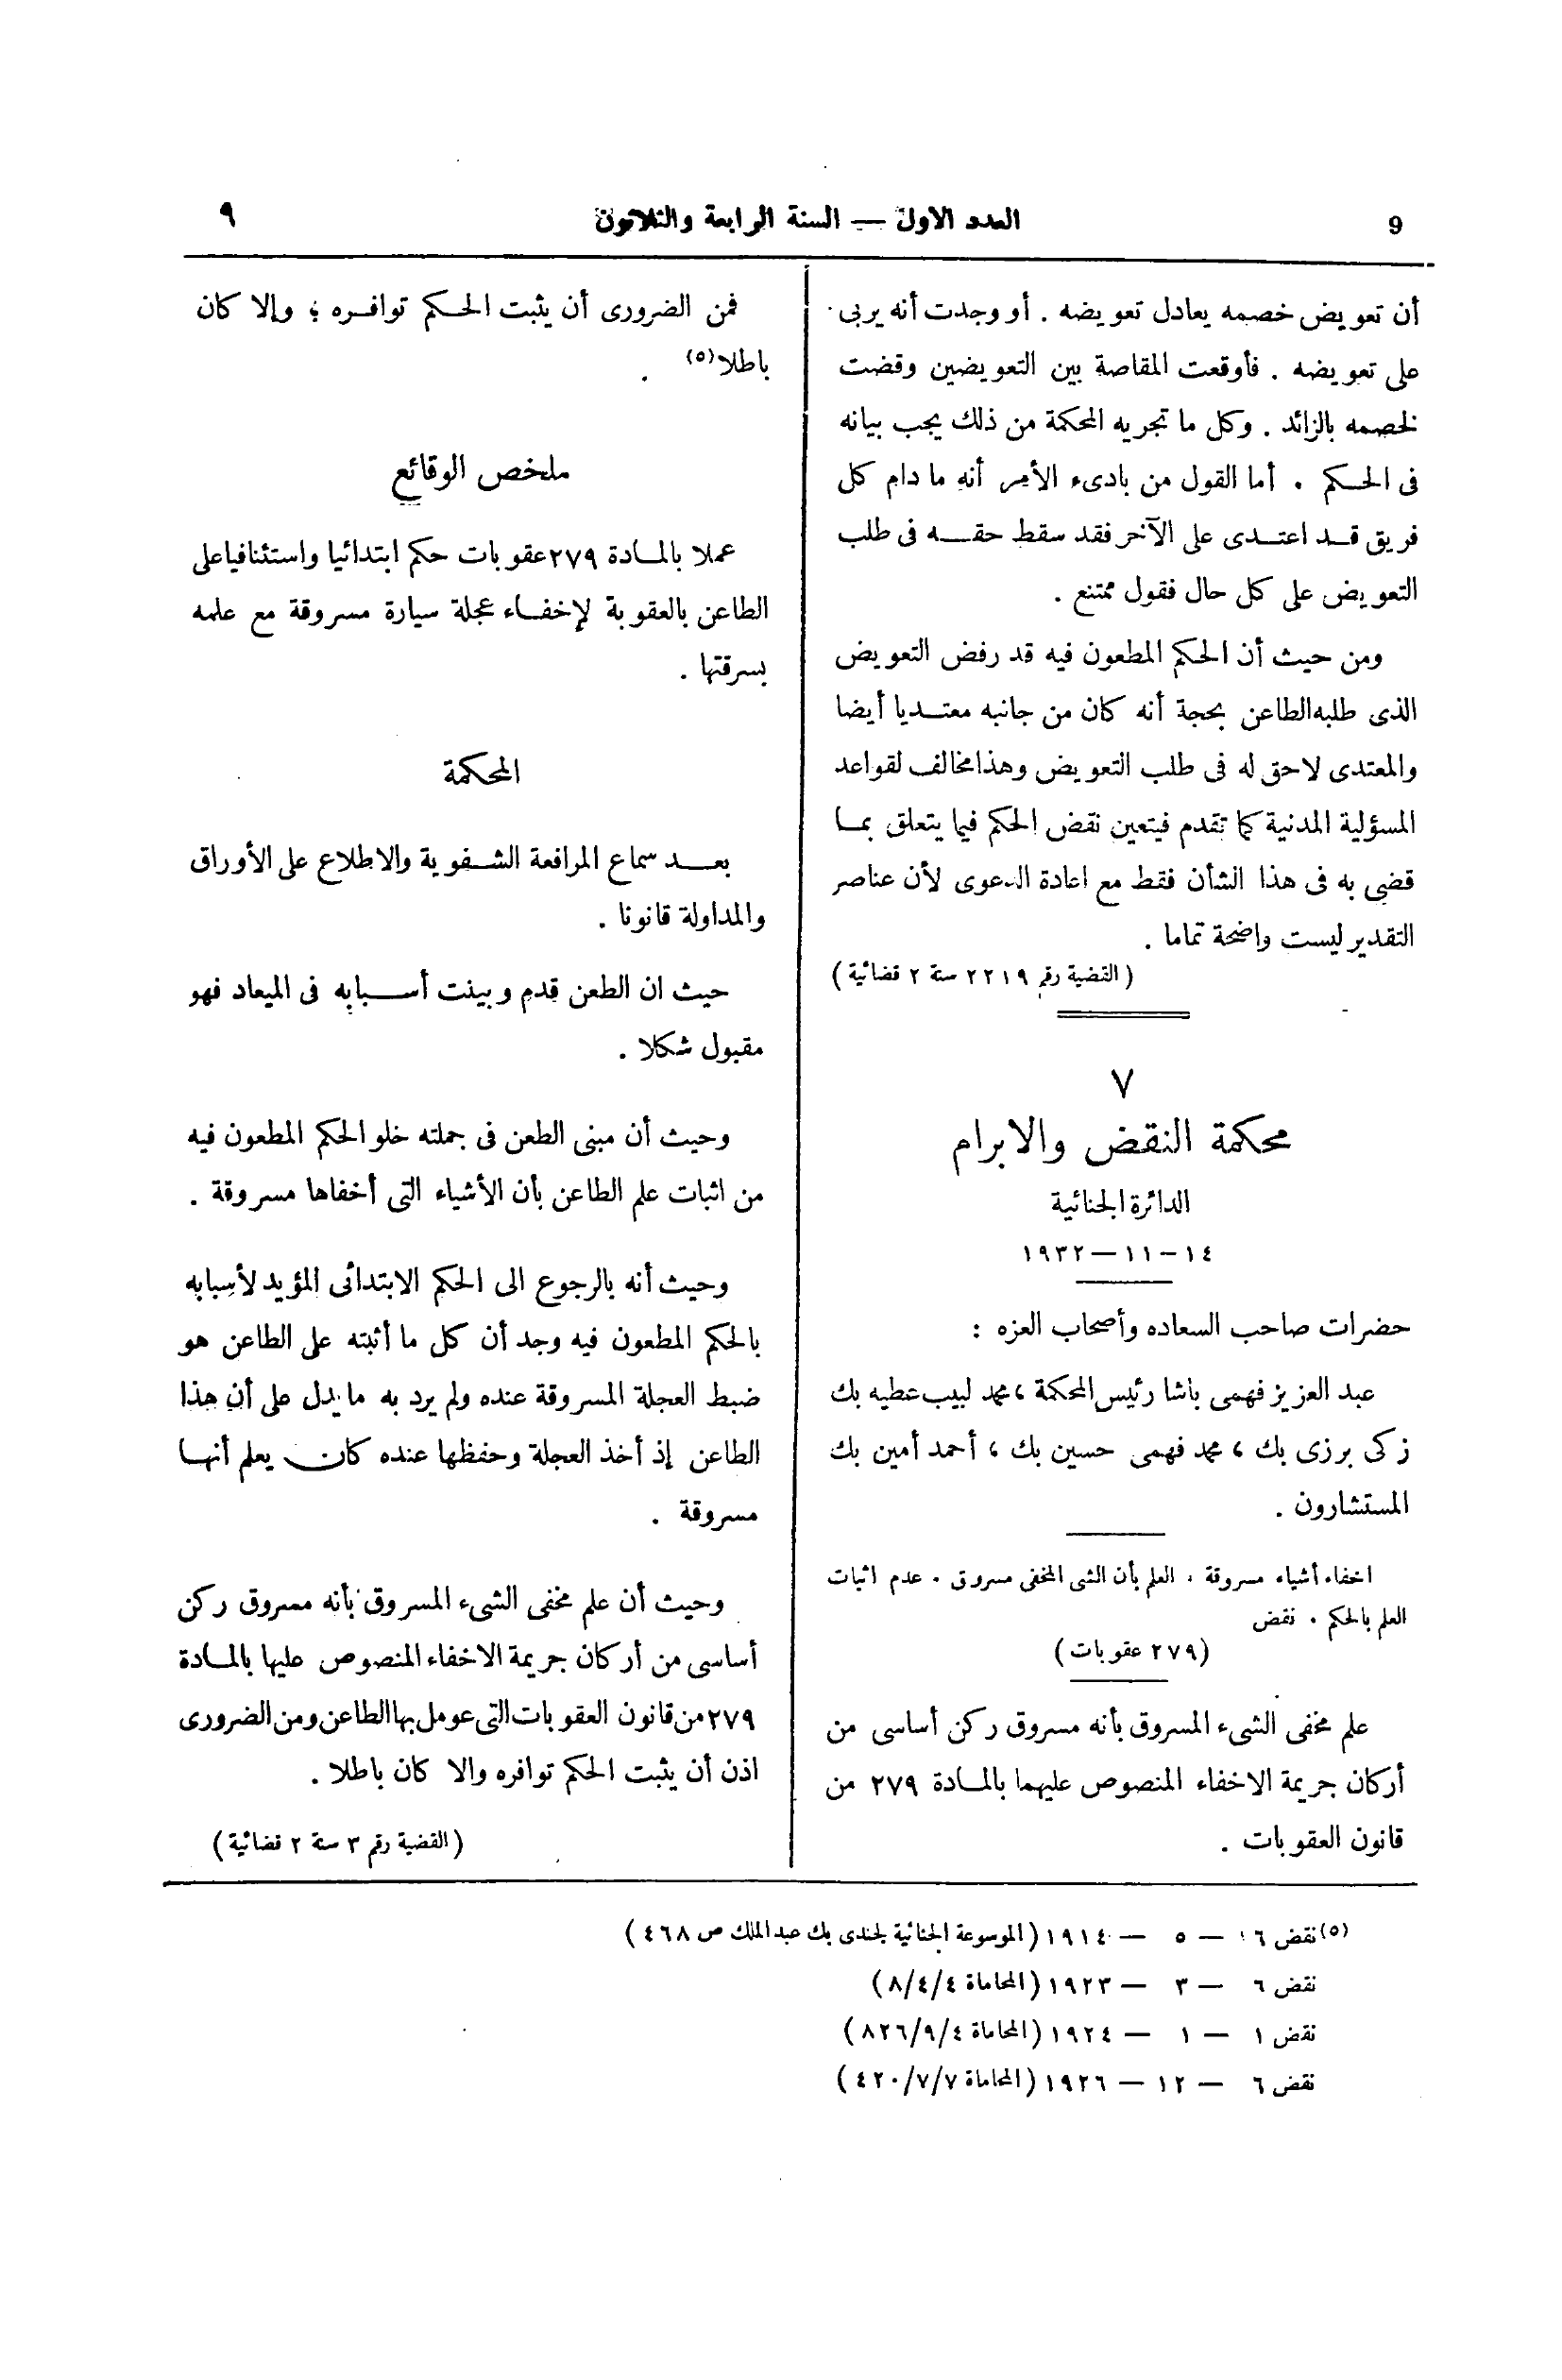 9
العدد الاول — السنة الرابعة والثلاثون
٩
أن تعويض خصمه يعادل تعويضه . أو وجدت أنه يربى
على تعويضه . فأوقعت المقاصة بين التعويضين وقضت
لخصمه بالزائد . وكل ما تجريه المحكمة من ذلك يجب بيانه
فى الحكم . أما القول من بادىء الأمر أنه ما دام كل
فريق قد اعتدى على الآخر فقد سقط حقه فى طلب
التعويض على كل حال فقول ممتنع .
ومن حيث أن الحكم المطعون فيه قد رفض التعويض
الذى طلبه الطاعن بحجة أنه كان من جانبه معتديا أيضا
والمعتدى لاحق له فى طلب التعويض وهذا مخالف لقواعد
المسؤلية المدنية كما تقدم فيتعين نقض الحكم فيما يتعلق بما
قضى به فى هذا الشأن فقط مع اعادة الدعوى لأن عناصر
التقدير ليست واضحة تماما .
( القضية رقم ٢٢١٩ سنة ٢ قضائية )
٧
محكمة النقض والابرام
الدائرة الجنائية
١٤ – ١١ — ١٩٣٢
حضرات صاحب السعاده وأصحاب العزه :
عبد العزيز فهمى باشا رئيس المحكمة ، محمد لبيب عطيه بك
زكى برزى بك ، محمد فهمى حسين بك ، أحمد أمين بك
المستشارون .
اخفاء أشياء مسروقة . العلم بأن الشى المخفى مسروق . عدم اثبات
العلم بالحكم . نقض
( ٢٧٩ عقوبات )
علم مخفى الشىء المسروق بأنه مسروق ركن أساسى من
أركان جريمة الاخفاء المنصوص عليهما بالمادة ٢٧٩ من
قانون العقوبات .
فمن الضرورى أن يثبت الحكم توافره ؛ وإلا كان
باطلا (٥) .
ملخص الوقائع
عملا بالمادة ٢٧٩ عقوبات حكم ابتدائيا واستئنافيا على
الطاعن بالعقوبة لإخفاء عجلة سيارة مسروقة مع علمه
بسرقتها .
المحكمة
بعد سماع المرافعة الشفوية والاطلاع على الأوراق
والمداولة قانونا .
حيث ان الطعن قدم وبينت أسبابه فى الميعاد فهو
مقبول شكلا .
وحيث أن مبنى الطعن فى جملته خلو الحكم المطعون فيه
من اثبات علم الطاعن بأن الأشياء التى أخفاها مسروقة .
وحيث أنه بالرجوع الى الحكم الابتدائى المؤيد لأسبابه
بالحكم المطعون فيه وجد أن كل ما أثبته على الطاعن هو
ضبط العجلة المسروقة عنده ولم يرد به ما يدل على أن هذا
الطاعن إذ أخذ العجلة وحفظها عنده كان يعلم أنها
مسروقة .
وحيث أن علم مخفى الشىء المسروق بأنه مسروق ركن
أساسى من أركان جريمة الاخفاء المنصوص عليها بالمادة
٢٧٩ من قانون العقوبات التى عومل بها الطاعن ومن الضرورى
اذن أن يثبت الحكم توافره والا كان باطلا .
( القضية رقم ٣ سنة ٢ قضائية )
(٥) نقض ١٦ — ٥ — ١٩١٤ ( الموسوعة الجنائية لجندى بك عبد الملك ص ٤٦٨ )
نقض ٦ — ٣ — ١٩٢٣ ( المحاماة ٨/٤/٤ )
نقض ١ — ١ — ١٩٢٤ ( المحاماة ٨٢٦/٩/٤ )
نقض ٦ — ١٢ — ١٩٢٦ ( المحاماة ٤٢٠/٧/٧ )